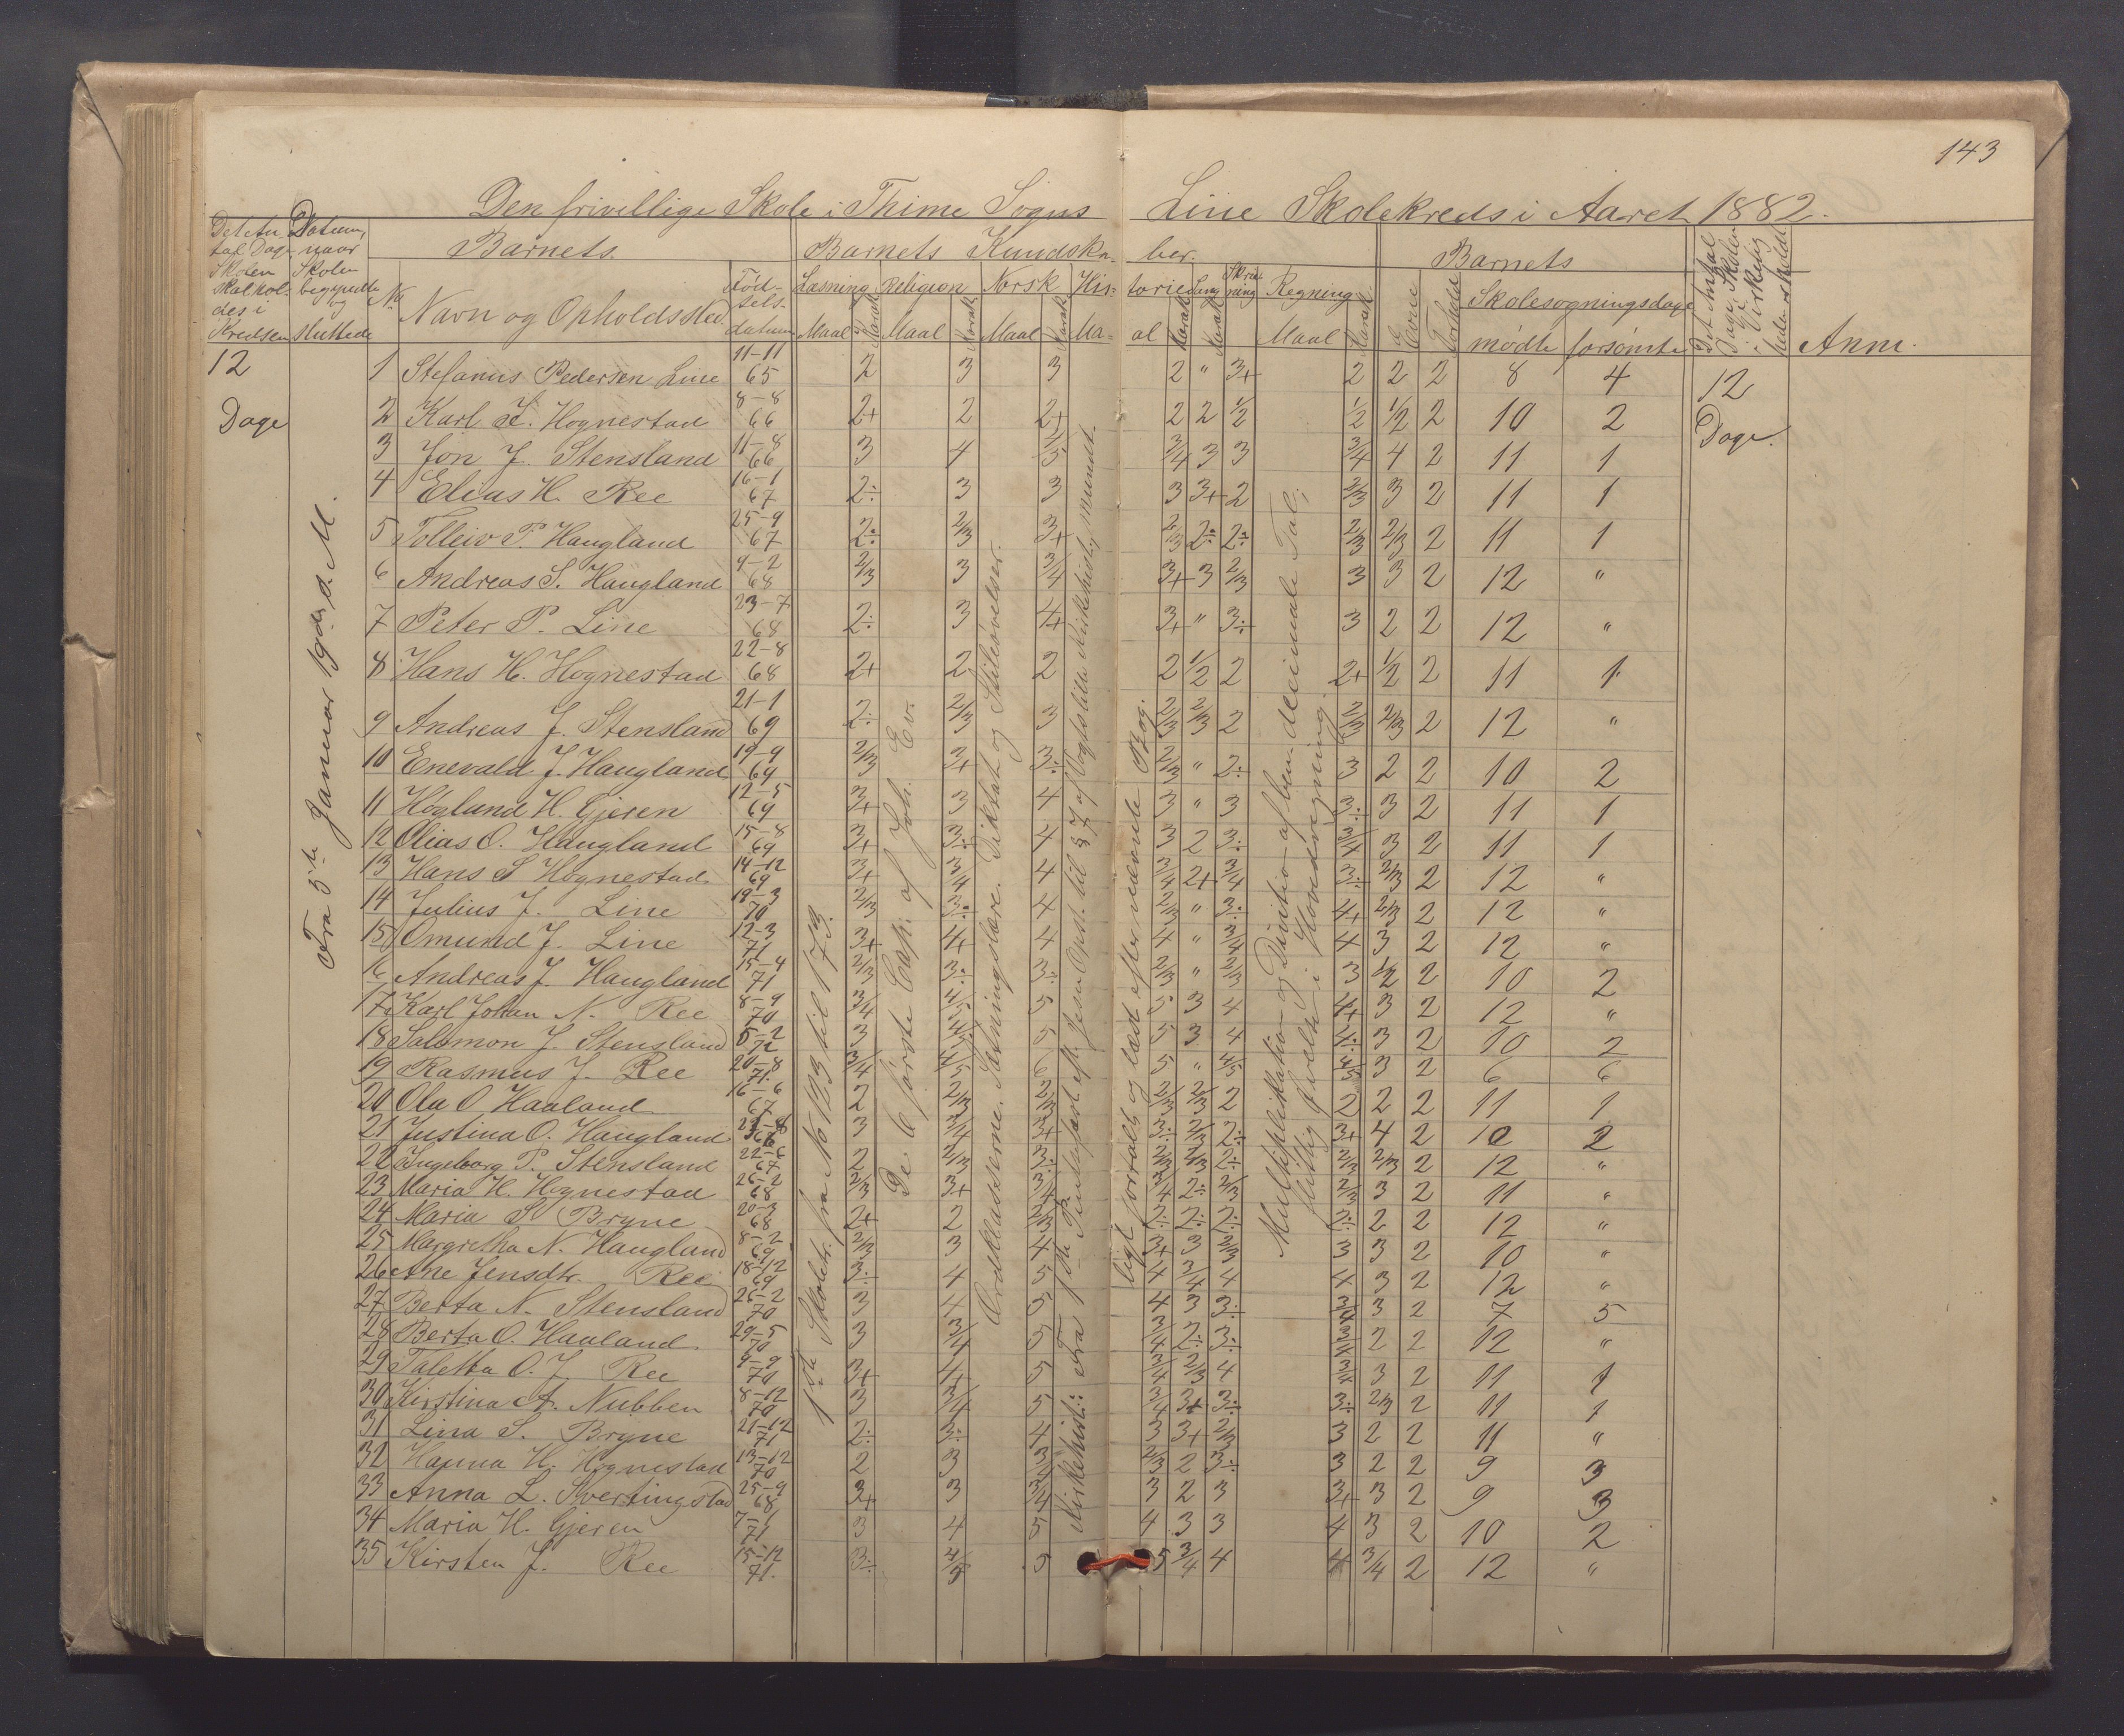 143
Den frivellige Skole i Thime Sogns Line Skolekreds i Aaret 1882.
Det An- tal Dage Skolen skal hol- des i Kredsen
Datum, naar Skolen begyndte og sluttede
No
Barnets
Navn og Opholdssted
Föd- sels- datum
Barnets Kundska- ber.
Læsning Religion Norsk His- torie Sang Skriv- ning Regning
Maal Karak. Maal Karak. Maal Karak. Ma- al Karak. Karak. Maal Karak.
Barnets
Evne Forhold
Skolesøgningsdage
mødte forsömte
Det Antal Dage Skolen i Virkelig- heden er holdt
Anm.
12 Dage
Fra 5te Januar 19de s. M.
1 Stefanus Pedersen Line 11-11 65 2 3 3 2 " 3+ 2 2 2 8 4 12
2 Karl K. Hognestad 8-8 66 2+ 2 2+ 2 2 1/2 1/2 1/2 2 10 2 Dage.
3 Jon J. Stensland 11-8 66 3 4 4/5 3/4 3 3 3/4 4 2 11 1
4 Elias H. Ree 16-1 67 2÷ 3 3 3 3+ 2 2/3 3 2 11 1
5 Tolleiv P. Haugland 25-9 67 2÷ 2/3 3+ 2/3 2÷ 2÷ 2/3 2/3 2 11 1
6 Andreas S. Haugland 9-2 68 2/3 3 3/4 3+ 3 2/3 3 3 2 12 "
7 Peter P. Line 23-7 68 2÷ 3 4+ 3+ " 3÷ 3 2 2 12 "
8 Hans H. Hognestad 22-8 68 2+ 2 2 2 1/2 2 2+ 1/2 2 11 1
9 Andreas J. Stensland 21-1 69 2÷ 2/3 3 2/3 2/3 2 2/3 2/3 2 12 "
10 Enevald J. Haugland 19-9 69 2/3 3+ 3÷ 2/3 " 2÷ 3 2 2 10 2
11 Högland H. Gjeren 12-5 69 3+ 3 4 3 " 3 3÷ 3 2 11 1
12 Olias O. Haugland 15-8 69 3+ 3÷ 4 3 2 3÷ 3/4 3 2 11 1
13 Hans S Hognestad 14-12 69 3+ 3/4 4 3/4 2+ 3/4 3÷ 2/3 2 12 "
14 Julius J. Line 19-3 70 2/3 3÷ 4 2/3 " 3÷ 4+ 2/3 2 12 "
15 Omund J. Line 12-3 71 3+ 4+ 4 4 " 3/4 4 3 2 12 "
16 Andreas J. Haugland 15-4 71 2/3 3÷ 3÷ 2/3 " 2/3 3 1/2 2 10 2
17 Karl Johan N. Ree 8-9 70 3/4 4/5 5 5 3 4 4+ 3 2 12 "
18 Salomon J. Stensland 5-2 72 3 4/5 5 5 3 4 4÷ 3 2 10 2
19 Rasmus J. Ree 20-8 71. 3/4 4/5 6 5 " 4/5 4/5 3 2 6 6
20 Ola O Haaland 16-6 67 2 2/3 2/3 2/3 2/3 2 2 2 2 11 1
21 Justina O. Haugland 3 3/4 3+ 3÷ 2/3 2÷ 3+ 4 2 10 2
22 Ingeborg P. Stensland 22-6 67 2 2/3 3÷ 2/3 2/3 2÷ 2/3 2/3 2 12 "
23 Maria H. Hognestad 26-2 68 2/3 3+ 3/4 3/4 2÷ 2/3 2/3 3 2 11 "
24 Maria S Bryne 20-3 68 2+ 2 2/3 2÷ 2÷ 2÷ 2÷ 2 2 12 "
25 Margretha N. Haugland 8-2 69 2/3 3 4 3+ 3 2/3 3 3 2 10 "
26 Ane Jensdtr. Ree 18-12 69 3÷ 4 5 4 3/4 4 4 3 2 12 "
27 Berta N. Stensland 26-2 70 3 4 5 4 3 3÷ 3/4 3 2 7 5
28 Berta O. Haaland 29-5 70 3 3/4 5 3/4 2÷ 3÷ 3/4 2 2 12 "
29 Taletta O. J. Ree 9-9 70 3+ 4+ 5 3/4 2/3 4 3/4 3 2 11 1
30 Kirstina A. Nubben 8-12 70 3 3/4 5 3/4 3+ 3÷ 3÷ 2/3 2 11 1
31 Lina S. Bryne 21-12 71 2÷ 3÷ 4 3 3+ 2/3 3 2 2 11 "
32 Hanna H. Hognestad 13-12 70 2 3 3/4 2/3 2 3÷ 3 2 2 9 3
33 Anna L. Svertingstad 25-9 68 3+ 3 3/4 3 2 3 3+ 3 2 9 3
34 Maria H. Gjeren 7-1 71 3 4 5 4 3 3 4 3 2 10 2
35 Kirsten J. Ree 15-12 71. 3÷ 4/5 5 5 3/4 4 4 3/4 2 12 "
1ste Skoletr. fra No 123 til 173.
De 6 förste Cap. af Joh. Ev.
Ordklasserne. Sætningslære. Diktat og Stilövelser.
Kirkehist: Fra 1ste Pindsefest eft. Jesu Opst. til § 7 af Vogts lille Kirkehistorie mundt-
ligt fortalt og læst efter nævnte Bog.
Multiplikation og Division af ben. decimale Tal;
flittig övelse i Hovedregning.